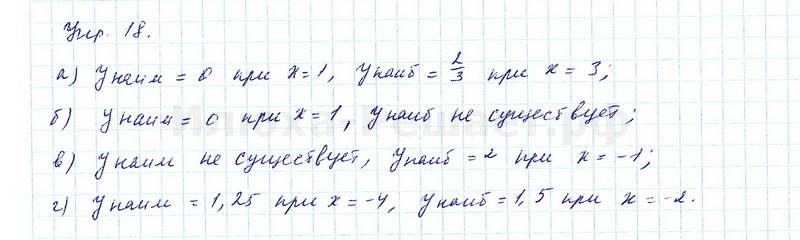 Упр. 18.
а) y наим = 0 при x = 1, y наиб = 2/3 при x = 3;
б) y наим = 0 при x = 1, y наиб не существует;
в) y наим не существует, y наиб = 2 при x = -1;
г) y наим = 1,25 при x = -4, y наиб = 1,5 при x = -2.